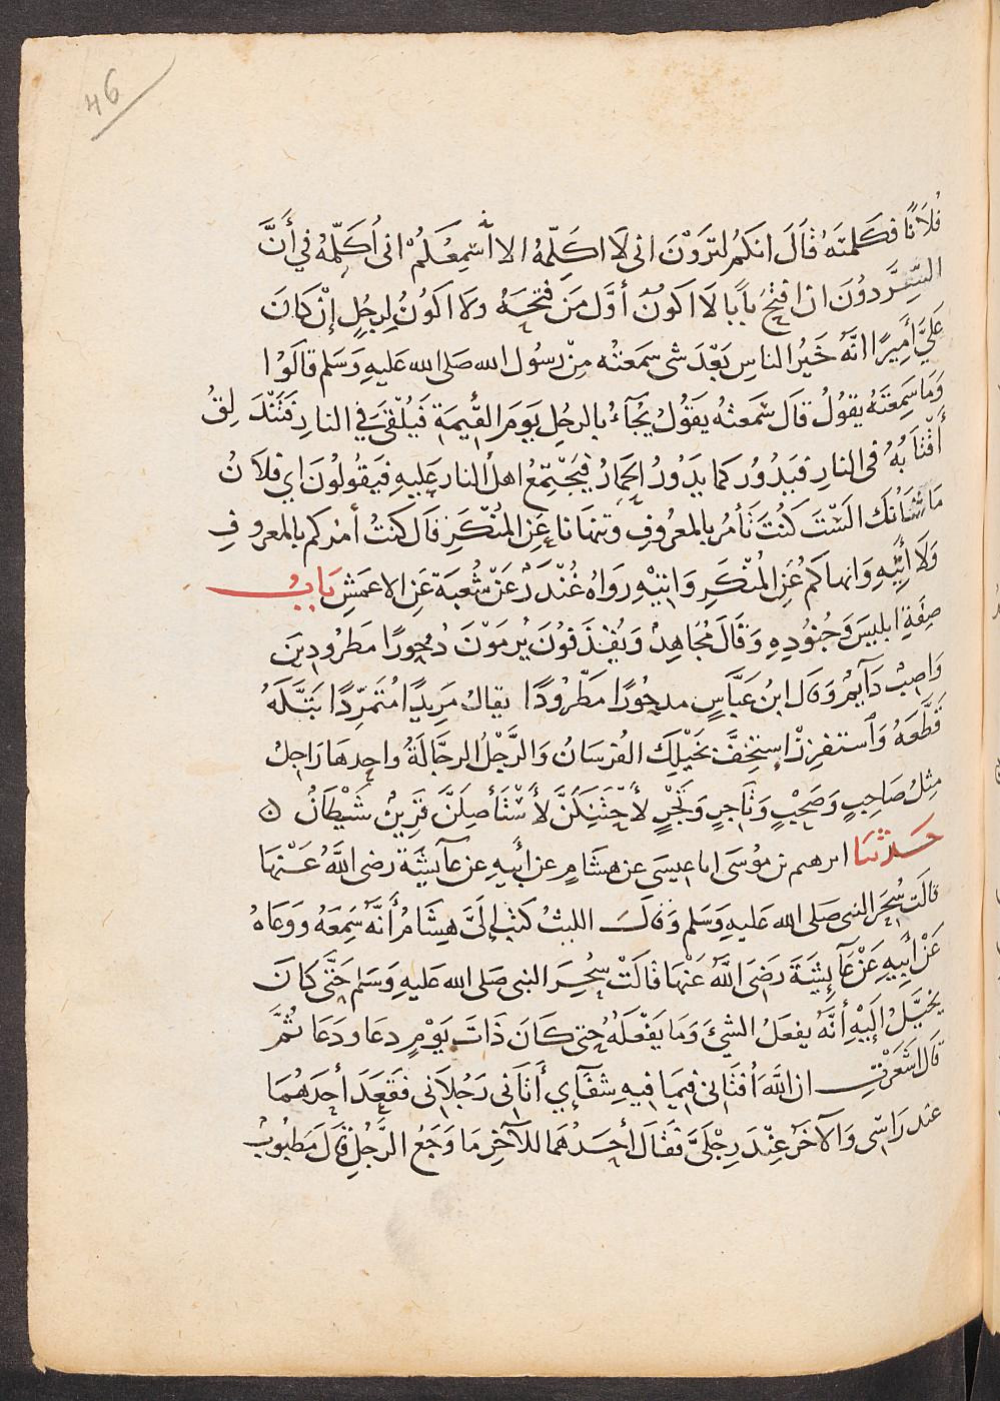 46
فُلَانًا فكَلمتَهُ قَالَ انكمُ لترَوْنَ انى لَا اكَلِّمُهُ الا اُسْمِعُكُمْ انى اُكَلِّمُهُ فِي أَنَّ
السِّرَّ دوُنَ ان افتحَ بَابًا لَا اكوُنُ أوَّل مَن فتحَهُ ولَا اكوُنُ لِرجُلٍ إنْ كَانَ
عَليَّ أَمِيرًا انَّهُ خَيرُ الناسِ بَعْدَ شى سمَعتهُ مِنْ رسُول الله صَلى الله عَليهِ وَسَلم قالَوُا
وَمَا سَمِعتَهُ يقوُلُ قالَ سَمعتهُ يَقوُلُ يُجَآءُ بالرجُلِ يَومَ القيمَةِ فَيُلْقَى في النارِ فتَنْدَ لِقُ
أَقْتَابُهُ فى النارِ فيَدُورُ كما يَدُورُ الحمَارُ فيَجْتمِعُ اهلُ النار عَليهِ فيَقُولُونَ اي فلَانُ
مَا شَأنُكَ الَسْتَ كنُتَ تَأمُرُ بالمعرُوفِ وتنهَانا عَنِ المُنْكَرِ قَال كنتُ أمرُكم بالمعروفِ
وَلَا أتِيهِ وَانهاكم عَنِ المُنكَرِ وَاتيهِ رَواهُ غُنْدَرٌ عَنْ شُعبَةَ عَنِ الاعمَشِ بَابُ
صِفَةِ ابليسَ وَجُنوُدِهِ وَقَالَ مُجَاهِدٌ وَيُقْذَفوُنَ يُرمَوْنَ دُحُورًا مَطرُودِينَ
وَاصِبٌ دَآيمٌ وَقَال ابنُ عَبَّاسٍ مدحُورًا مَطْرُودًا يقالُ مَرِيدًا مُتَمَرِّدًا بَتَّكَهُ
قَطَّعَهُ وَاَستفزِزْ اسِتخِفَّ بخَيْلِكَ الفُرسَانُ وَالرَّجْلُ الرجَّالةُ واحِدهَا رَاجِلٌ
مِثلُ صَاحِبٍ وَصَحْبٍ وَتَاجِرٍ وَتَجْرٍ لأَحْتَنِكَنَّ لأَسْتَأصِلَنَّ قَرِينٌ شَيْطَانٌ ۞
حَدثنا ابرهيم بن موُسَى انا عِيسَى عن هشَامٍ عن أَبيهِ عن عآيشَة رضى اللَّهُ عَنْهَا
قالَت سُحِرَ النبى صَلى الله عَليهِ وَسَلم وَقالَ الليثُ كتَبَ إلىَّ هِشَامٌ أَنَّهُ سَمِعَهُ وَوَعَاهُ
عَنْ أَبيهِ عَنْ عَآيِشَةَ رَضىَ اللَّهُ عَنْهَا قالَتْ سُحِرَ النبى صَلى الله عليهِ وَسَلم حَتَّى كَانَ
يُخيَّلُ إلَيْهِ أَنَّهُ يفعَلُ الشيءَ وَمَا يَفْعَلهُ حتى كَانَ ذَاتَ يَوْمٍ دعَا ودَعَا ثُمَّ
قَال اشَعَرْتِ ان اللَّهَ أَفتَانى فِيمَا فيهِ شِفَآءِي أَتَانى رَجُلَانى فقَعَدَ أَحدهُمَا
عند رَاسِى وَالآخَرُ عِنْدَ رِجْلَيَّ فقَالَ أَحَدُهمَا للآخِرِ مَا وَجَعُ الرَّجُلِ قَال مَطبُوبٌ